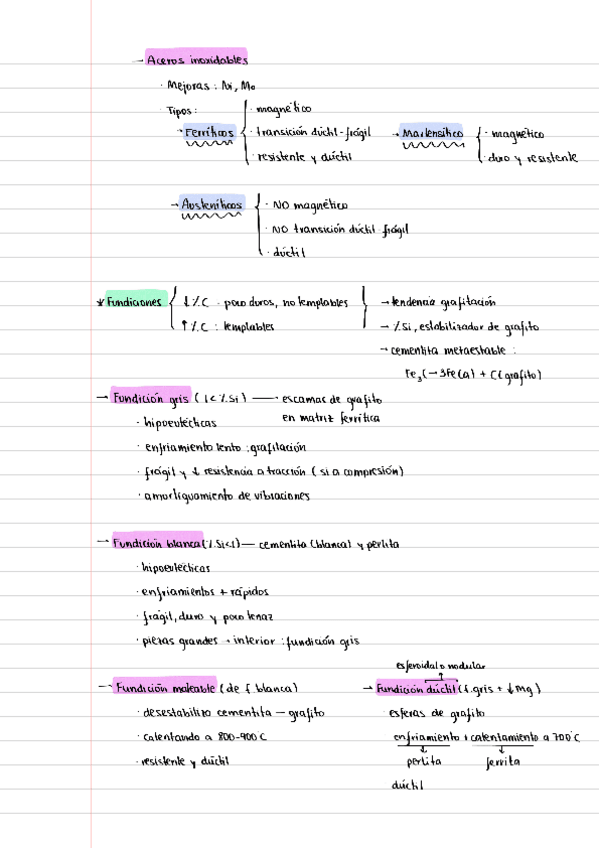 → Aceros inoxidables
· Mejoras : Ni, Mo
· Tipos :
→ Ferríticos { · magnético
· transición dúctil-frágil
· resistente y dúctil
→ Martensítico { · magnético
· duro y resistente
→ Austeníticos { · NO magnético
· NO transición dúctil-frágil
· dúctil
* Fundiciones { ↓ %C : poco duros, no templables
↑ %C : templables
→ tendencia grafitación
→ %Si, estabilizador de grafito
→ cementita metaestable :
Fe3C → 3Fe(α) + C(grafito)
→ Fundición gris ( 1< %Si ) — escamas de grafito
en matriz ferrítica
· hipoeutécticas
· enfriamiento lento : grafitación
· frágil y ↓ resistencia a tracción ( si a compresión)
· amortiguamiento de vibraciones
→ Fundición blanca (%Si<1) — cementita (blanca) y perlita
· hipoeutécticas
· enfriamientos + rápidos
· frágil, duro y poco tenaz
· piezas grandes → interior : fundición gris
→ Fundición maleable (de f. blanca)
· desestabilizo cementita — grafito
· calentando a 800-900°C
· resistente y dúctil
esferoidal o nodular
→ Fundición dúctil (f. gris + ↓Mg)
esferas de grafito
enfriamiento + calentamiento a 700°C
perlita ferrita
dúctil